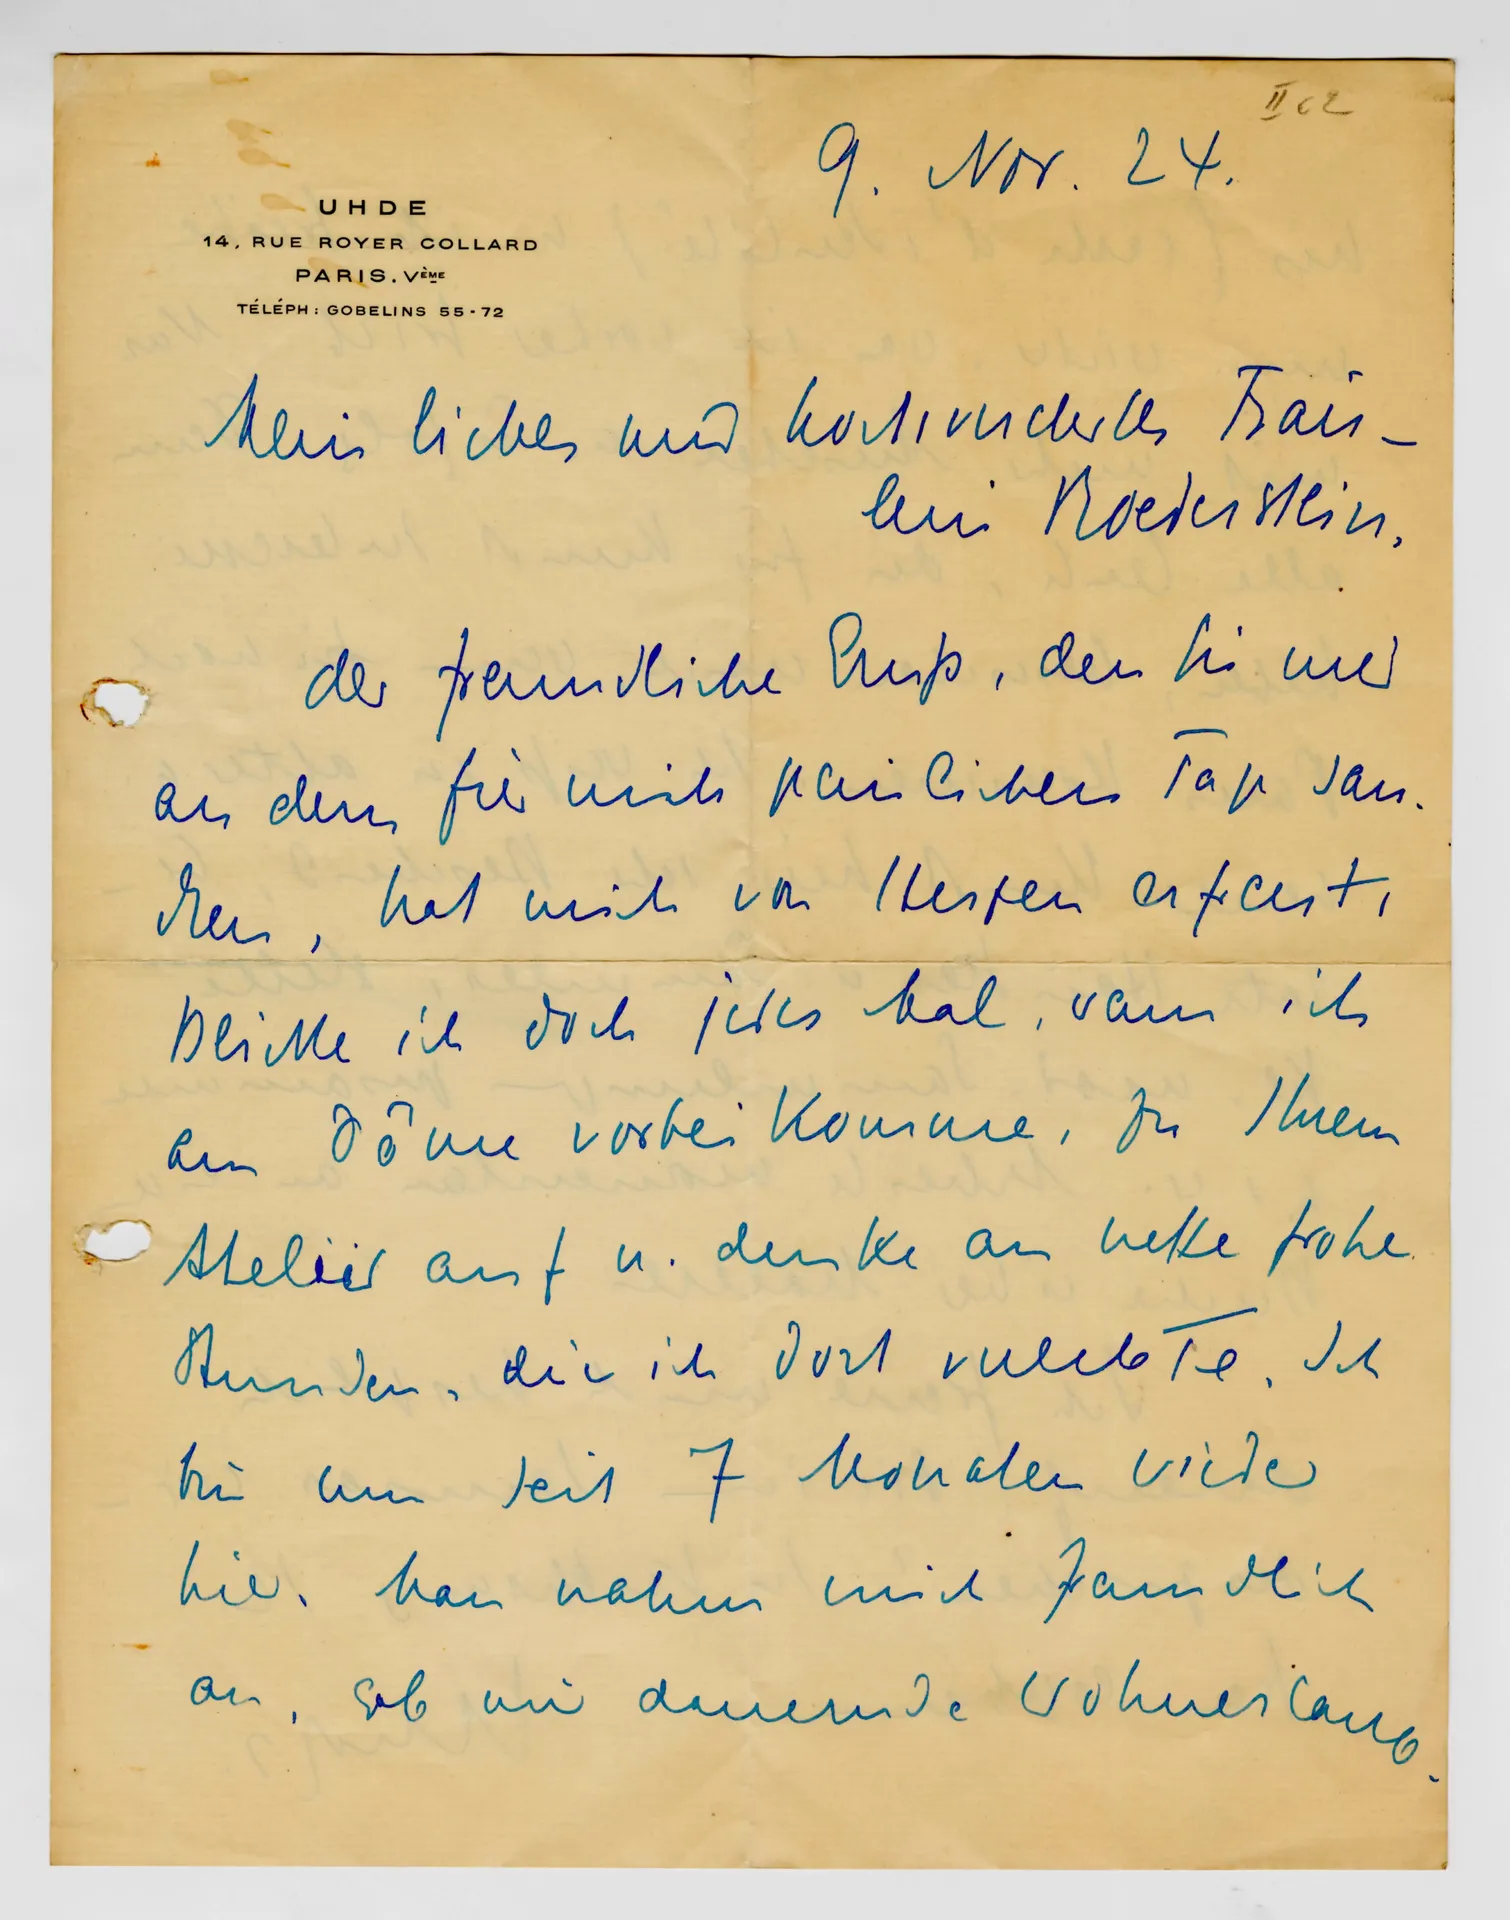 II 62
9. Nov. 24.
UHDE
14, RUE ROYER COLLARD
PARIS. VÈME
TÉLÉPH: GOBELINS 55-72
Mein liebes und hochverehrtes Fräu-
lein Roederstein,
der freundliche Gruß, den Sie mir
an dem für mich peinlichen Tage san-
dten, hat mich von Herzen erfreut,
blicke ich doch jedes Mal, wenn ich
am Dôme vorbeikomme, zu Ihrem
Atelier auf u. denke an nette frohe
Stunden, die ich dort verlebte. Ich
bin nun seit 7 Monaten wieder
hier. Man nahm mich freundlich
an, gab mir dauernde Wohnerlaub.